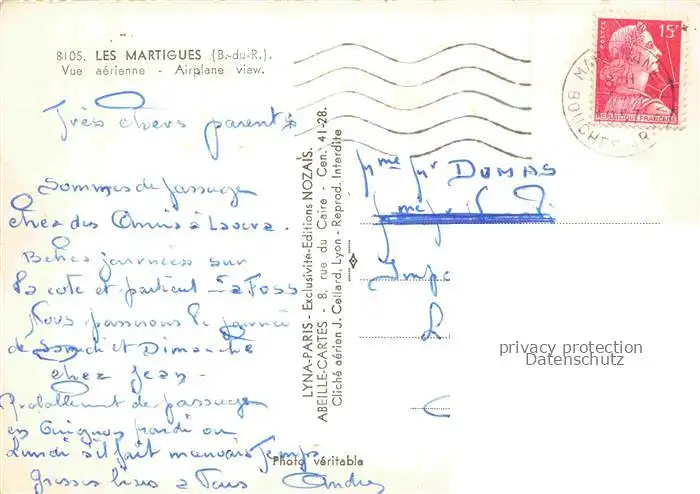 8105. LES MARTIGUES (B.-du-R.).
Vue aérienne - Airplane view.
Très chers parents
Sommes de passage
chez des Amis à Lavera.
Belles journées sur
la cote et particul
Nous passerons la journée
de Samedi et Dimanche
chez Jean -
Probablement de passage
en Avignon mardi ou
Lundi s'il fait mauvais Temps
Grosses bises a Tous André
Photo véritable
LYNA-PARIS - Exclusivité-Editions NOZAIS.
ABEILLE-CARTES - 8, rue du Caire - Cen. 41-28.
Cliché aérien J. Cellard, Lyon - Reprod. Interdite
POSTES 15F
REPUBLIQUE FRANÇAISE
BOUCHES
Mme Mr DUMAS
Imp
L
privacy protection
Datenschutz